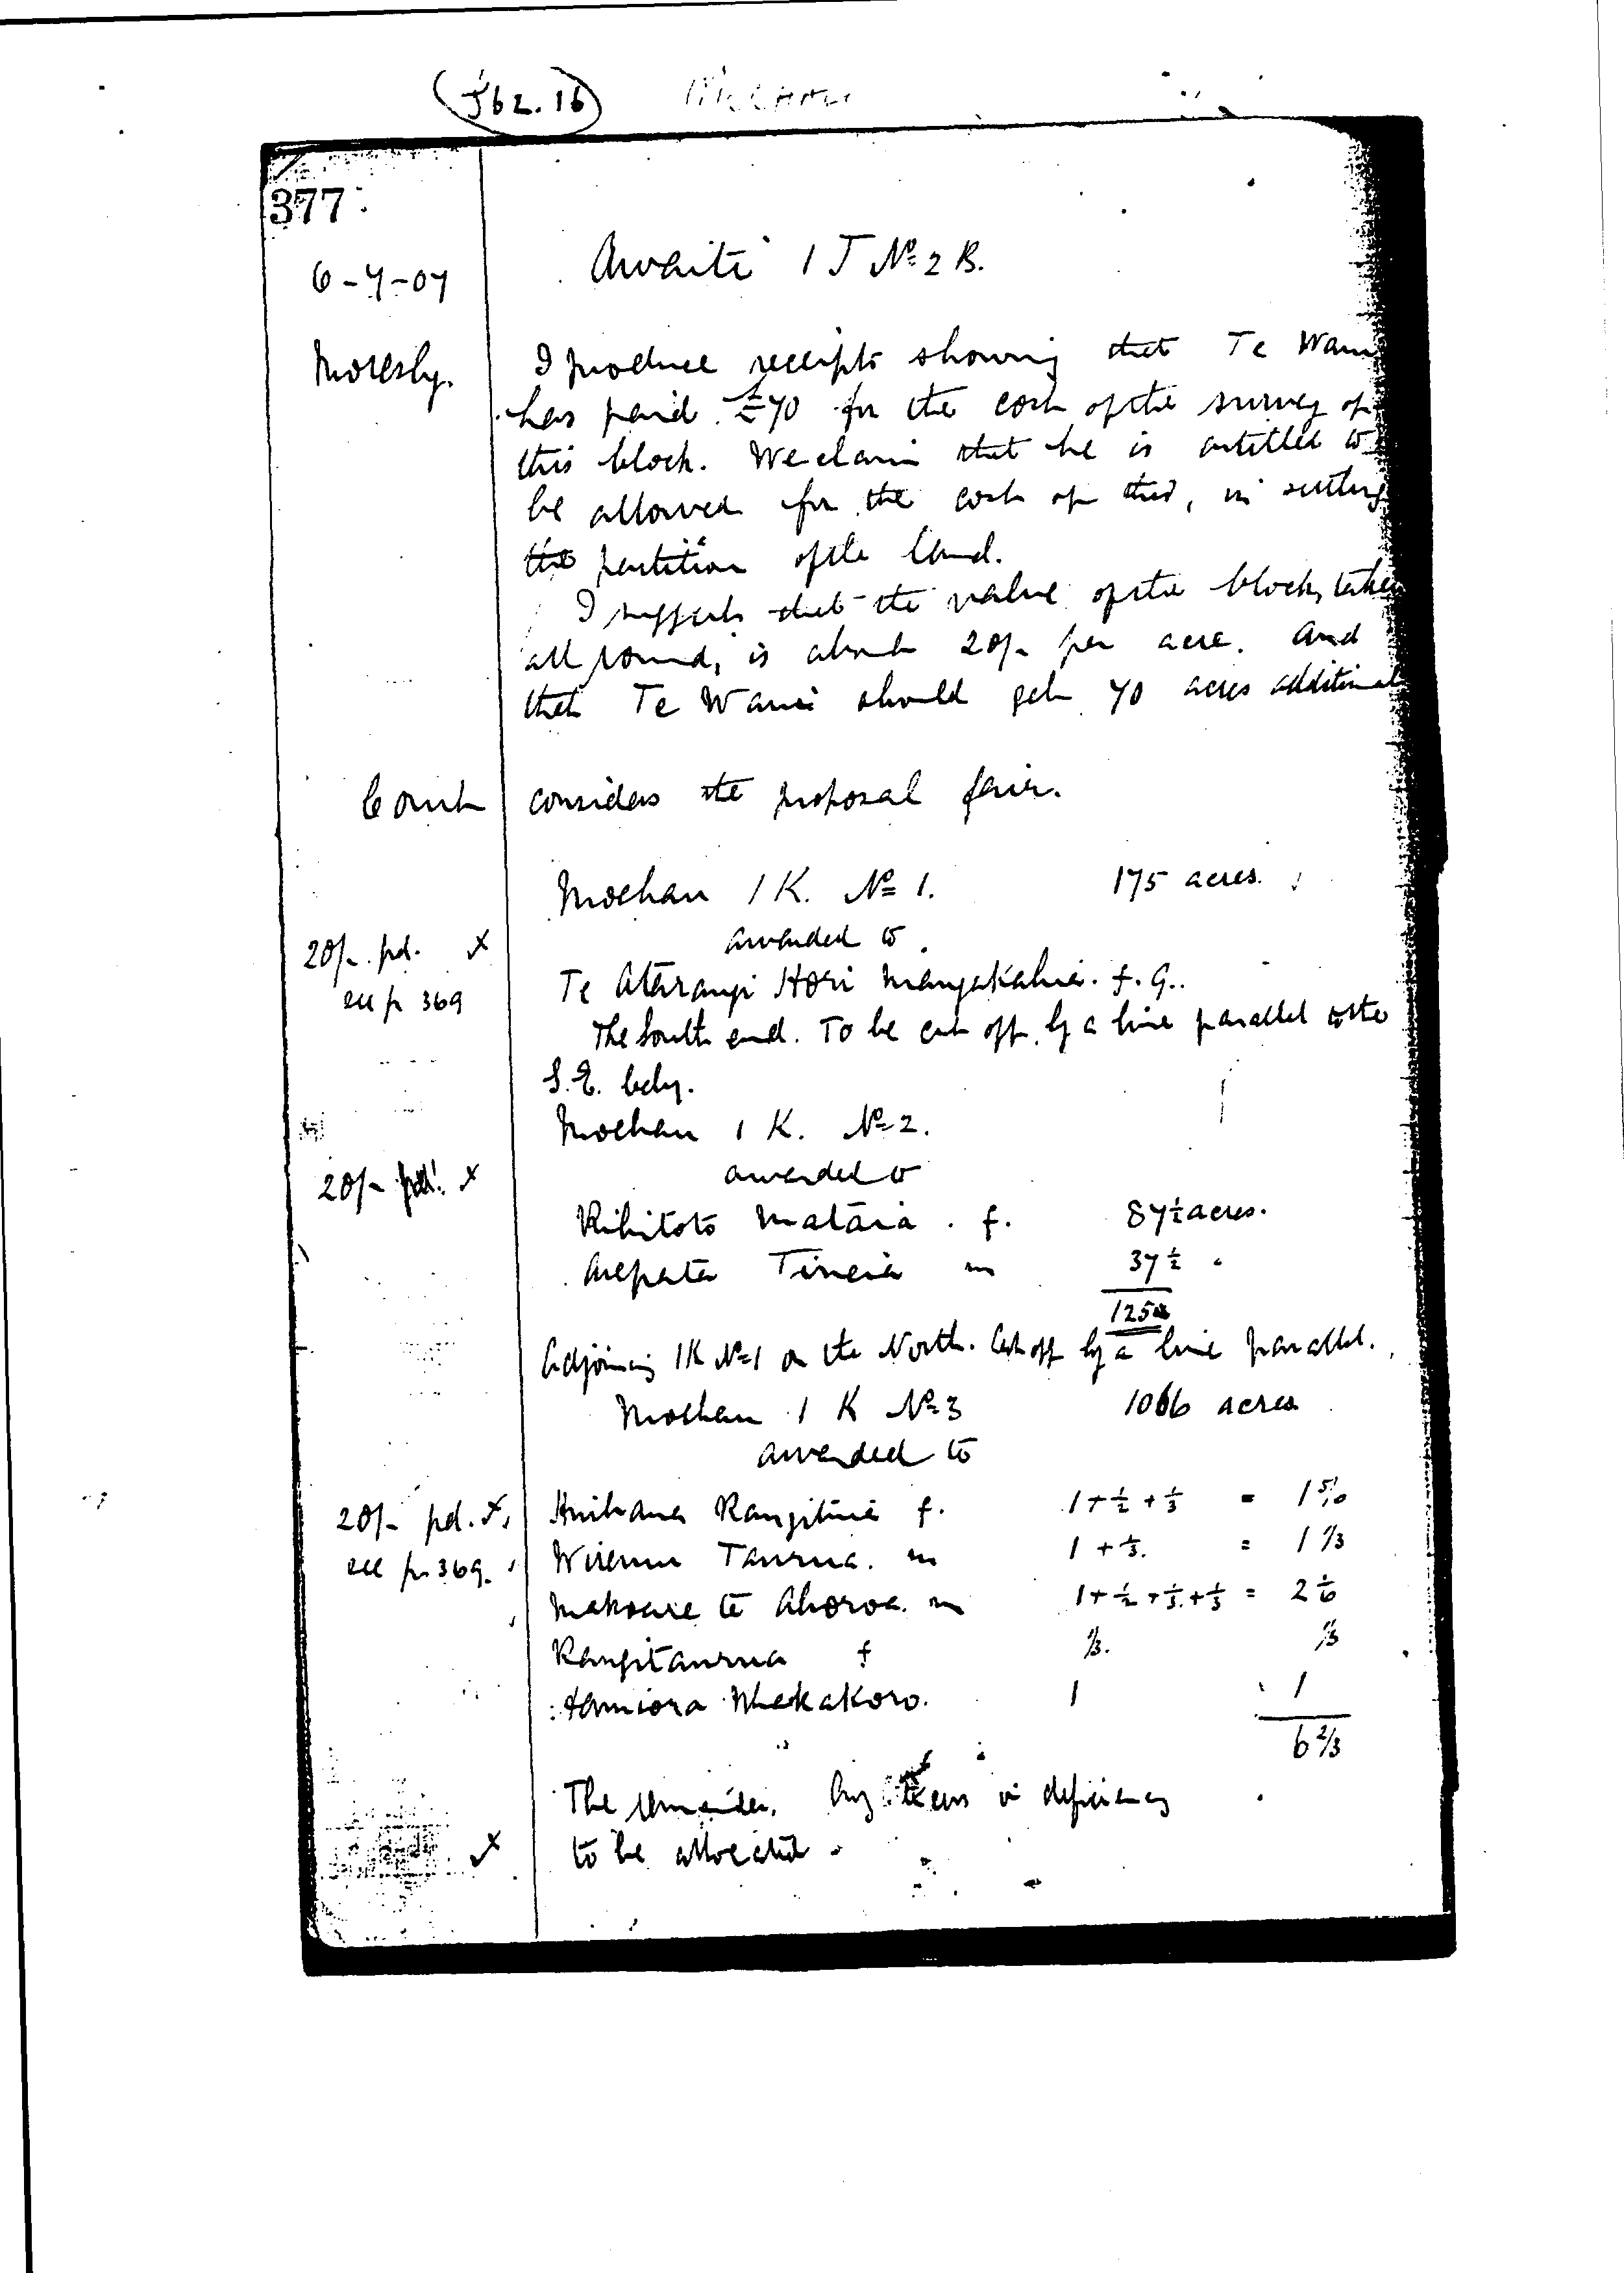 J62.16
377
Awaiti 1 J No 2 B.
6-7-07
Moresby. I produce receipts showing that Te Wani
has paid £70 for the cost of the survey of
this block. We claim that he is entitled to
be allowed for the cost of this, in
the partition of the land.
I suggest that the value of the block, taken
all round, is about 20/- per acre. And
that Te Wani should get 70 acres additional
Court considers the proposal fair.
Moehau 1 K. No 1. 175 acres.
awarded to
20/- pd. x
see p 369
Te Atarangi Hori Mangakahia. f. G..
The South end. To be cut off by a line parallel to the
S.E. bdy.
Moehau 1 K. No 2.
awarded to
20/- pd. x
Rihitoto Mataia. f. 87½ acres.
Arepata Tineia m 37½ "
125a
Adjoining 1K No 1 on the North. Cut off by a line parallel.
Moehau 1 K No 3 1066 acres
awarded to
20/- pd. x Huihana Rangituia f. 1+½+⅓ = 1 5/6
see p. 369. Wiremu Taurua. m 1+⅓. = 1⅓
Makoare te Ahoroa. m 1+½+⅓+⅓ = 2⅙
Rangitaurua f ⅓. ⅓
Hamiora Whakakoro. 1 1
6⅔
The remainder. Any excess or deficiency
x to be allocated.